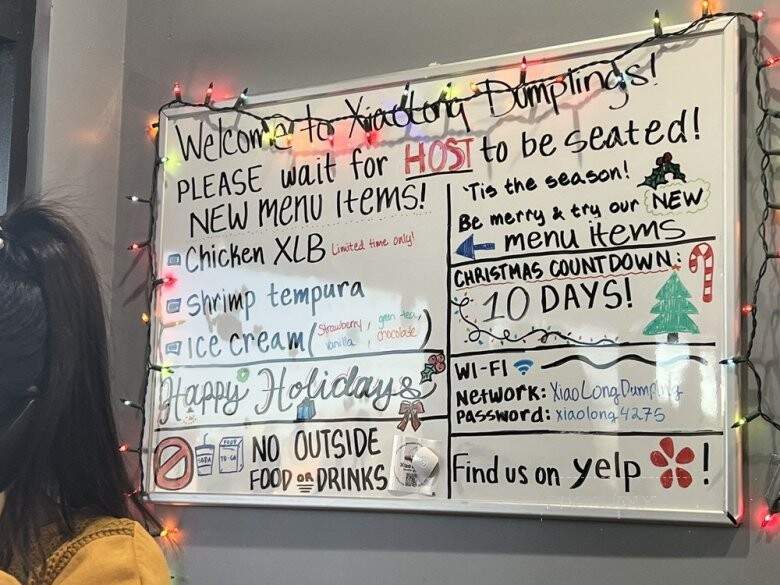 Welcome to Xiaolong Dumplings!
PLEASE wait for HOST to be seated!
NEW Menu Items!
Chicken XLB Limited time only!
Shrimp tempura
ICE Cream (Strawberry, green tea,
vanilla, chocolate)
Happy Holidays
SODA
FOOD
TO-GO
NO OUTSIDE
FOOD OR DRINKS
'Tis the season!
Be merry & try our NEW
menu items
CHRISTMAS COUNTDOWN:
10 DAYS!
WI-FI
Network: XiaoLongDumpling
PASSWORD: xiaolong4275
Find us on yelp !